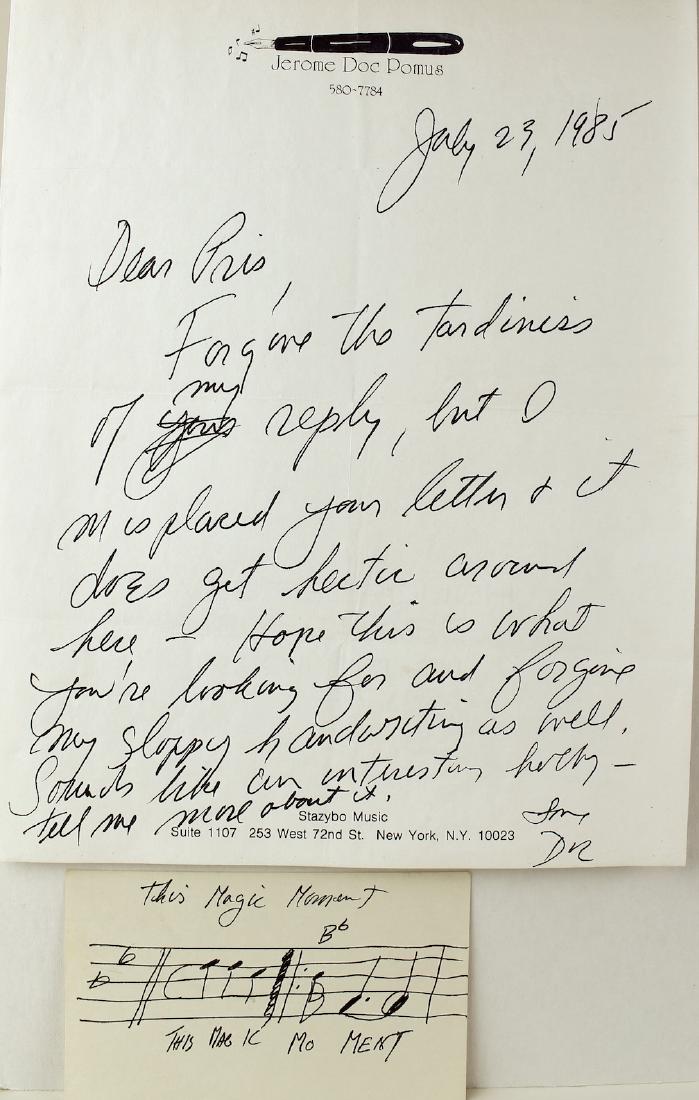 Jerome Doc Pomus
580-7784
July 23, 1985
Dear Pris,
Forgive the tardiness
my
of yours reply, but I
misplaced your letter & it
does get hectic around
here – Hope this is what
you're looking for and forgive
my sloppy handwriting as well.
Sounds like an interesting hobby –
tell me more about it.
Stazybo Music
Suite 1107 253 West 72nd St. New York, N.Y. 10023
Doc
This Magic Moment
Bb
THIS MAGIC MO MENT